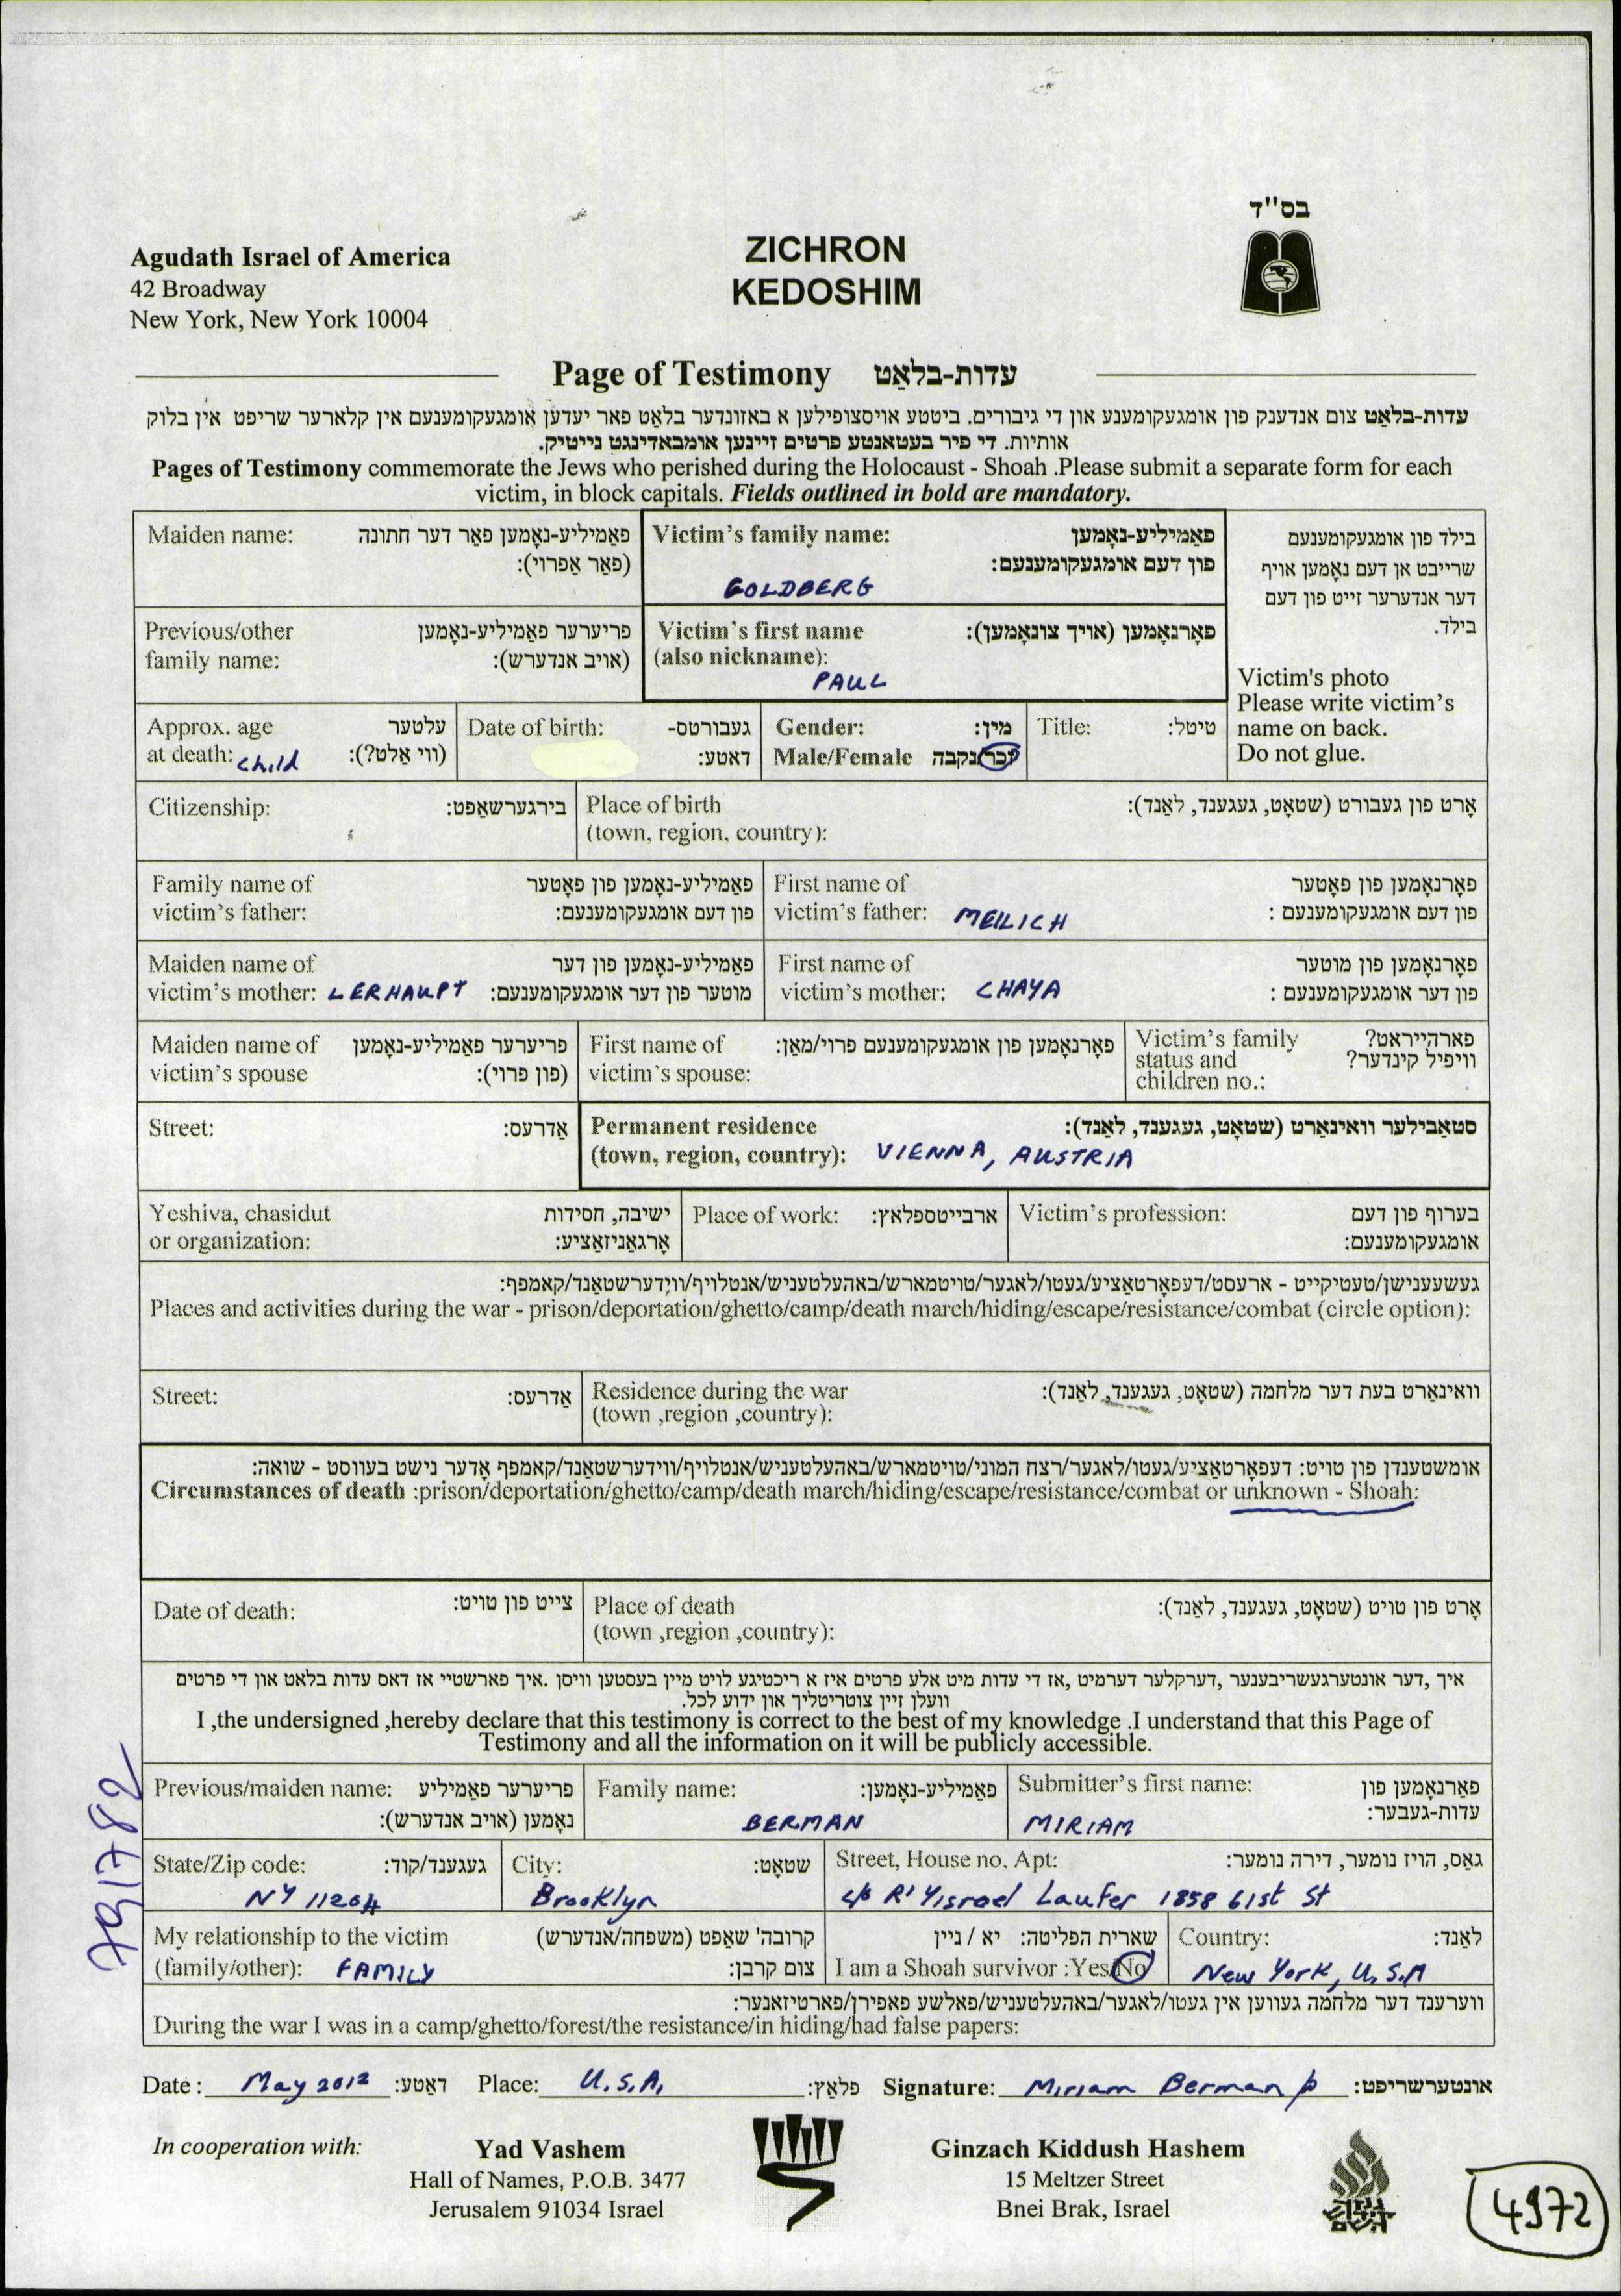 בס"ד
Agudath Israel of America
42 Broadway
New York, New York 10004
ZICHRON
KEDOSHIM
Page of Testimony עדות-בלאַט
עדות-בלאַט צום אנדענק פון אומגעקומענע און די גיבורים. ביטטע אויסצופילען א באזונדער בלאַט פאר יעדען אומגעקומענעם אין קלארער שריפט אין בלוק
אותיות. די פיר בעטאנטע פרטים זיינען אומבאדינגט נייטיק.
Pages of Testimony commemorate the Jews who perished during the Holocaust - Shoah .Please submit a separate form for each
victim, in block capitals. Fields outlined in bold are mandatory.
Maiden name: פאַמיליע-נאָמען פאַר דער חתונה
(פאַר אַפרוי):
Victim's family name: פאַמיליע-נאָמען
פון דעם אומגעקומענעם:
GOLDBERG
בילד פון אומגעקומענעם
שרייבט אן דעם נאָמען אויף
דער אנדערער זייט פון דעם
בילד.
Victim's photo
Please write victim's
name on back.
Do not glue.
Previous/other פריערער פאַמיליע-נאָמען
family name: (אויב אנדערש):
Victim's first name פאָרנאָמען (אויך צונאָמען):
(also nickname):
PAUL
Approx. age עלטער
at death: child (ווי אַלט?):
Date of birth: געבורטס-
דאטע:
Gender: מין:
Male/Female זכר/נקבה
Title: טיטל:
Citizenship: בירגערשאַפט:
Place of birth אָרט פון געבורט (שטאָט, געגענד, לאַנד):
(town, region, country):
Family name of פאַמיליע-נאָמען פון פאָטער
victim's father: פון דעם אומגעקומענעם:
First name of פאָרנאָמען פון פאָטער
victim's father: MEILICH פון דעם אומגעקומענעם :
Maiden name of פאַמיליע-נאָמען פון דער
victim's mother: LERHAUPT מוטער פון דער אומגעקומענעם:
First name of פאָרנאָמען פון מוטער
victim's mother: CHAYA פון דער אומגעקומענעם :
Maiden name of פריערער פאַמיליע-נאָמען
victim's spouse (פון פרוי):
First name of פאָרנאָמען פון אומגעקומענעם פרוי/מאַן:
victim's spouse:
Victim's family פארהייראט?
status and וויפיל קינדער?
children no.:
Street: אַדרעס:
Permanent residence סטאַבילער וואינאַרט (שטאָט, געגענד, לאַנד):
(town, region, country): VIENNA, AUSTRIA
Yeshiva, chasidut ישיבה, חסידות
or organization: אָרגאַניזאַציע:
Place of work: ארבייטספלאץ:
Victim's profession: בערוף פון דעם
אומגעקומענעם:
געשעענישן/טעטיקייט - ארעסט/דעפאָרטאַציע/געטו/לאגער/טויטמארש/באהעלטעניש/אנטלויף/ווידערשטאַנד/קאמפף:
Places and activities during the war - prison/deportation/ghetto/camp/death march/hiding/escape/resistance/combat (circle option):
Street: אַדרעס:
Residence during the war וואינאַרט בעת דער מלחמה (שטאָט, געגענד, לאַנד):
(town ,region ,country):
אומשטענדן פון טויט: דעפאָרטאַציע/געטו/לאגער/רצח המוני/טויטמארש/באהעלטעניש/אנטלויף/ווידערשטאַנד/קאמפף אָדער נישט בעוווסט - שואה:
Circumstances of death :prison/deportation/ghetto/camp/death march/hiding/escape/resistance/combat or unknown - Shoah:
Date of death: צייט פון טויט:
Place of death אָרט פון טויט (שטאָט, געגענד, לאַנד):
(town ,region ,country):
איך ,דער אונטערגעשריבענער ,דערקלער דערמיט ,אז די עדות מיט אלע פרטים איז א ריכטיגע לויט מיין בעסטען וויסן .איך פארשטיי אז דאס עדות בלאט און די פרטים
וועלן זיין צוטריטליך און ידוע לכל.
I ,the undersigned ,hereby declare that this testimony is correct to the best of my knowledge .I understand that this Page of
Testimony and all the information on it will be publicly accessible.
Previous/maiden name: פריערער פאַמיליע
נאָמען (אויב אנדערש):
Family name: פאַמיליע-נאָמען:
BERMAN
Submitter's first name: פאַרנאָמען פון
עדות-געבער:
MIRIAM
State/Zip code: געגענד/קוד:
NY 11204
City: שטאָט:
Brooklyn
Street, House no. Apt: גאַס, הויז נומער, דירה נומער:
c/o R' Yisrael Laufer 1858 61st St
My relationship to the victim קרובה' שאַפט (משפחה/אנדערש)
(family/other): FAMILY צום קרבן:
שארית הפליטה: יא / ניין
I am a Shoah survivor :Yes/No
Country: לאַנד:
New York, U.S.A
ווערענד דער מלחמה געווען אין געטו/לאגער/באהעלטעניש/פאלשע פאפירן/פארטיזאנער:
During the war I was in a camp/ghetto/forest/the resistance/in hiding/had false papers:
Date: May 2012 דאַטע: Place: U.S.A, פלאַץ: Signature: Miriam Berman אונטערשריפט:
In cooperation with:
Yad Vashem
Hall of Names, P.O.B. 3477
Jerusalem 91034 Israel
Ginzach Kiddush Hashem
15 Meltzer Street
Bnei Brak, Israel
4972